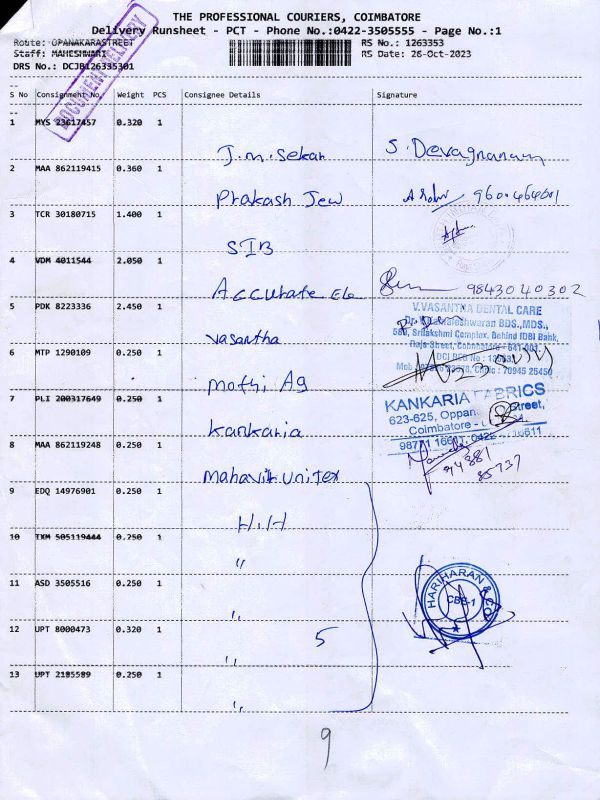 THE PROFESSIONAL COURIERS, COIMBATORE
Delivery Runsheet - PCT - Phone No.:0422-3505555 - Page No.:1
Route: OPANAKARASTREET RS No.: 1263353
Staff: MAHESHWARI RS Date: 26-Oct-2023
DRS No.: DCJB126335301
DOCUMENT DELIVERY
S No Consignment No. Weight PCS Consignee Details Signature
1 MYS 23617457 0.320 1
J.M. Sekar S. Devagnanam
2 MAA 862119415 0.360 1
Prakash Jew
3 TCR 30180715 1.400 1
SIB
4 VDM 4011544 2.050 1
Accurate Ele 9843040302
5 PDK 8223336 2.450 1
V.VASANTHA DENTAL CARE
BDS.,MDS.,
589, Srilakshmi Complex, Behind IDBI Bank,
Raja Street, Coimbatore - 641 001.
Vasantha
6 MTP 1290109 0.250 1
70945 25450
Mothi Ag
7 PLI 200317649 0.250 1
KANKARIA FABRICS
623-625, Oppan Street,
Coimbatore -
Kankaria
8 MAA 862119248 0.250 1
94881
85737
Mahavir Unitex
9 EDQ 14976901 0.250 1
H.H
10 TXM 505119444 0.250 1
"
11 ASD 3505516 0.250 1
HARIHARAN & CO
CBE-1
"
12 UPT 8000473 0.320 1
5
"
13 UPT 2185589 0.250 1
"
9